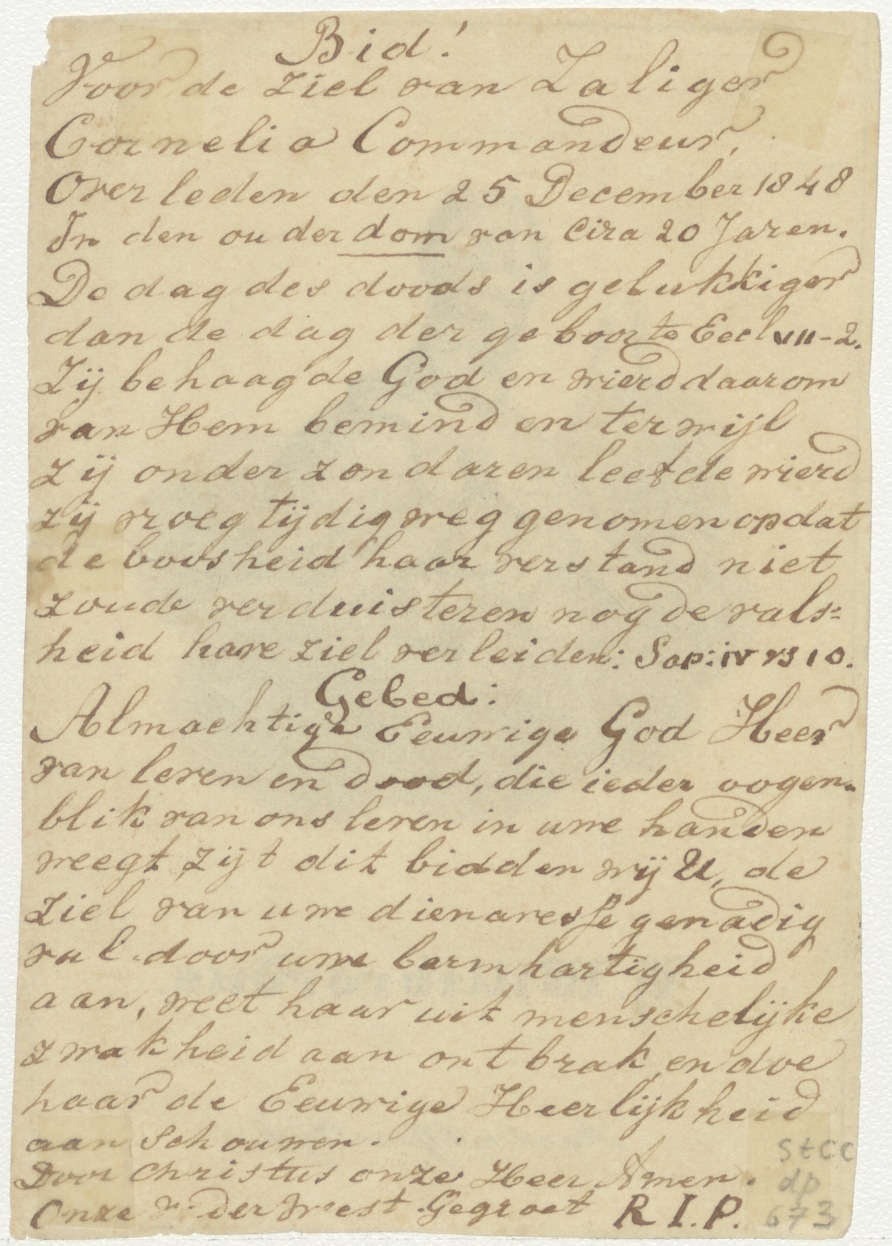 Bid!
Voor de Ziel van Zaliger
Cornelia Commandeur,
Overleden den 25 December 1848
In den ouderdom van Cira 20 Jaren.
De dag des doods is gelukkiger
dan de dag der geboorte Eccl VII-2.
Zij behaagde God en wierd daarom
van Hem bemind en terwijl
zij onder zondaren leefde wierd
zij vroegtijdig weg genomen opdat
de boosheid haar verstand niet
zoude verduisteren nog de vals=
heid hare ziel verleiden: Sap: IV vs 10.
Gebed:
Almachtige Eeuwige God Heer
van leven en dood, die ieder oogen=
blik van ons leven in uwe handen
weegt zijt dit bidden wij U, de
Ziel van uwe dienaresse genadig
vul door uwe barmhartigheid
aan, weet haar uit menschelijke
zwakheid aan ont brak, en doe
haar de Eeuwige Heerlijkheid
aan schouwen.
Door Christus onze Heer Amen.
Onze Weest Gegroet R. I. P.
stcc
dp
673